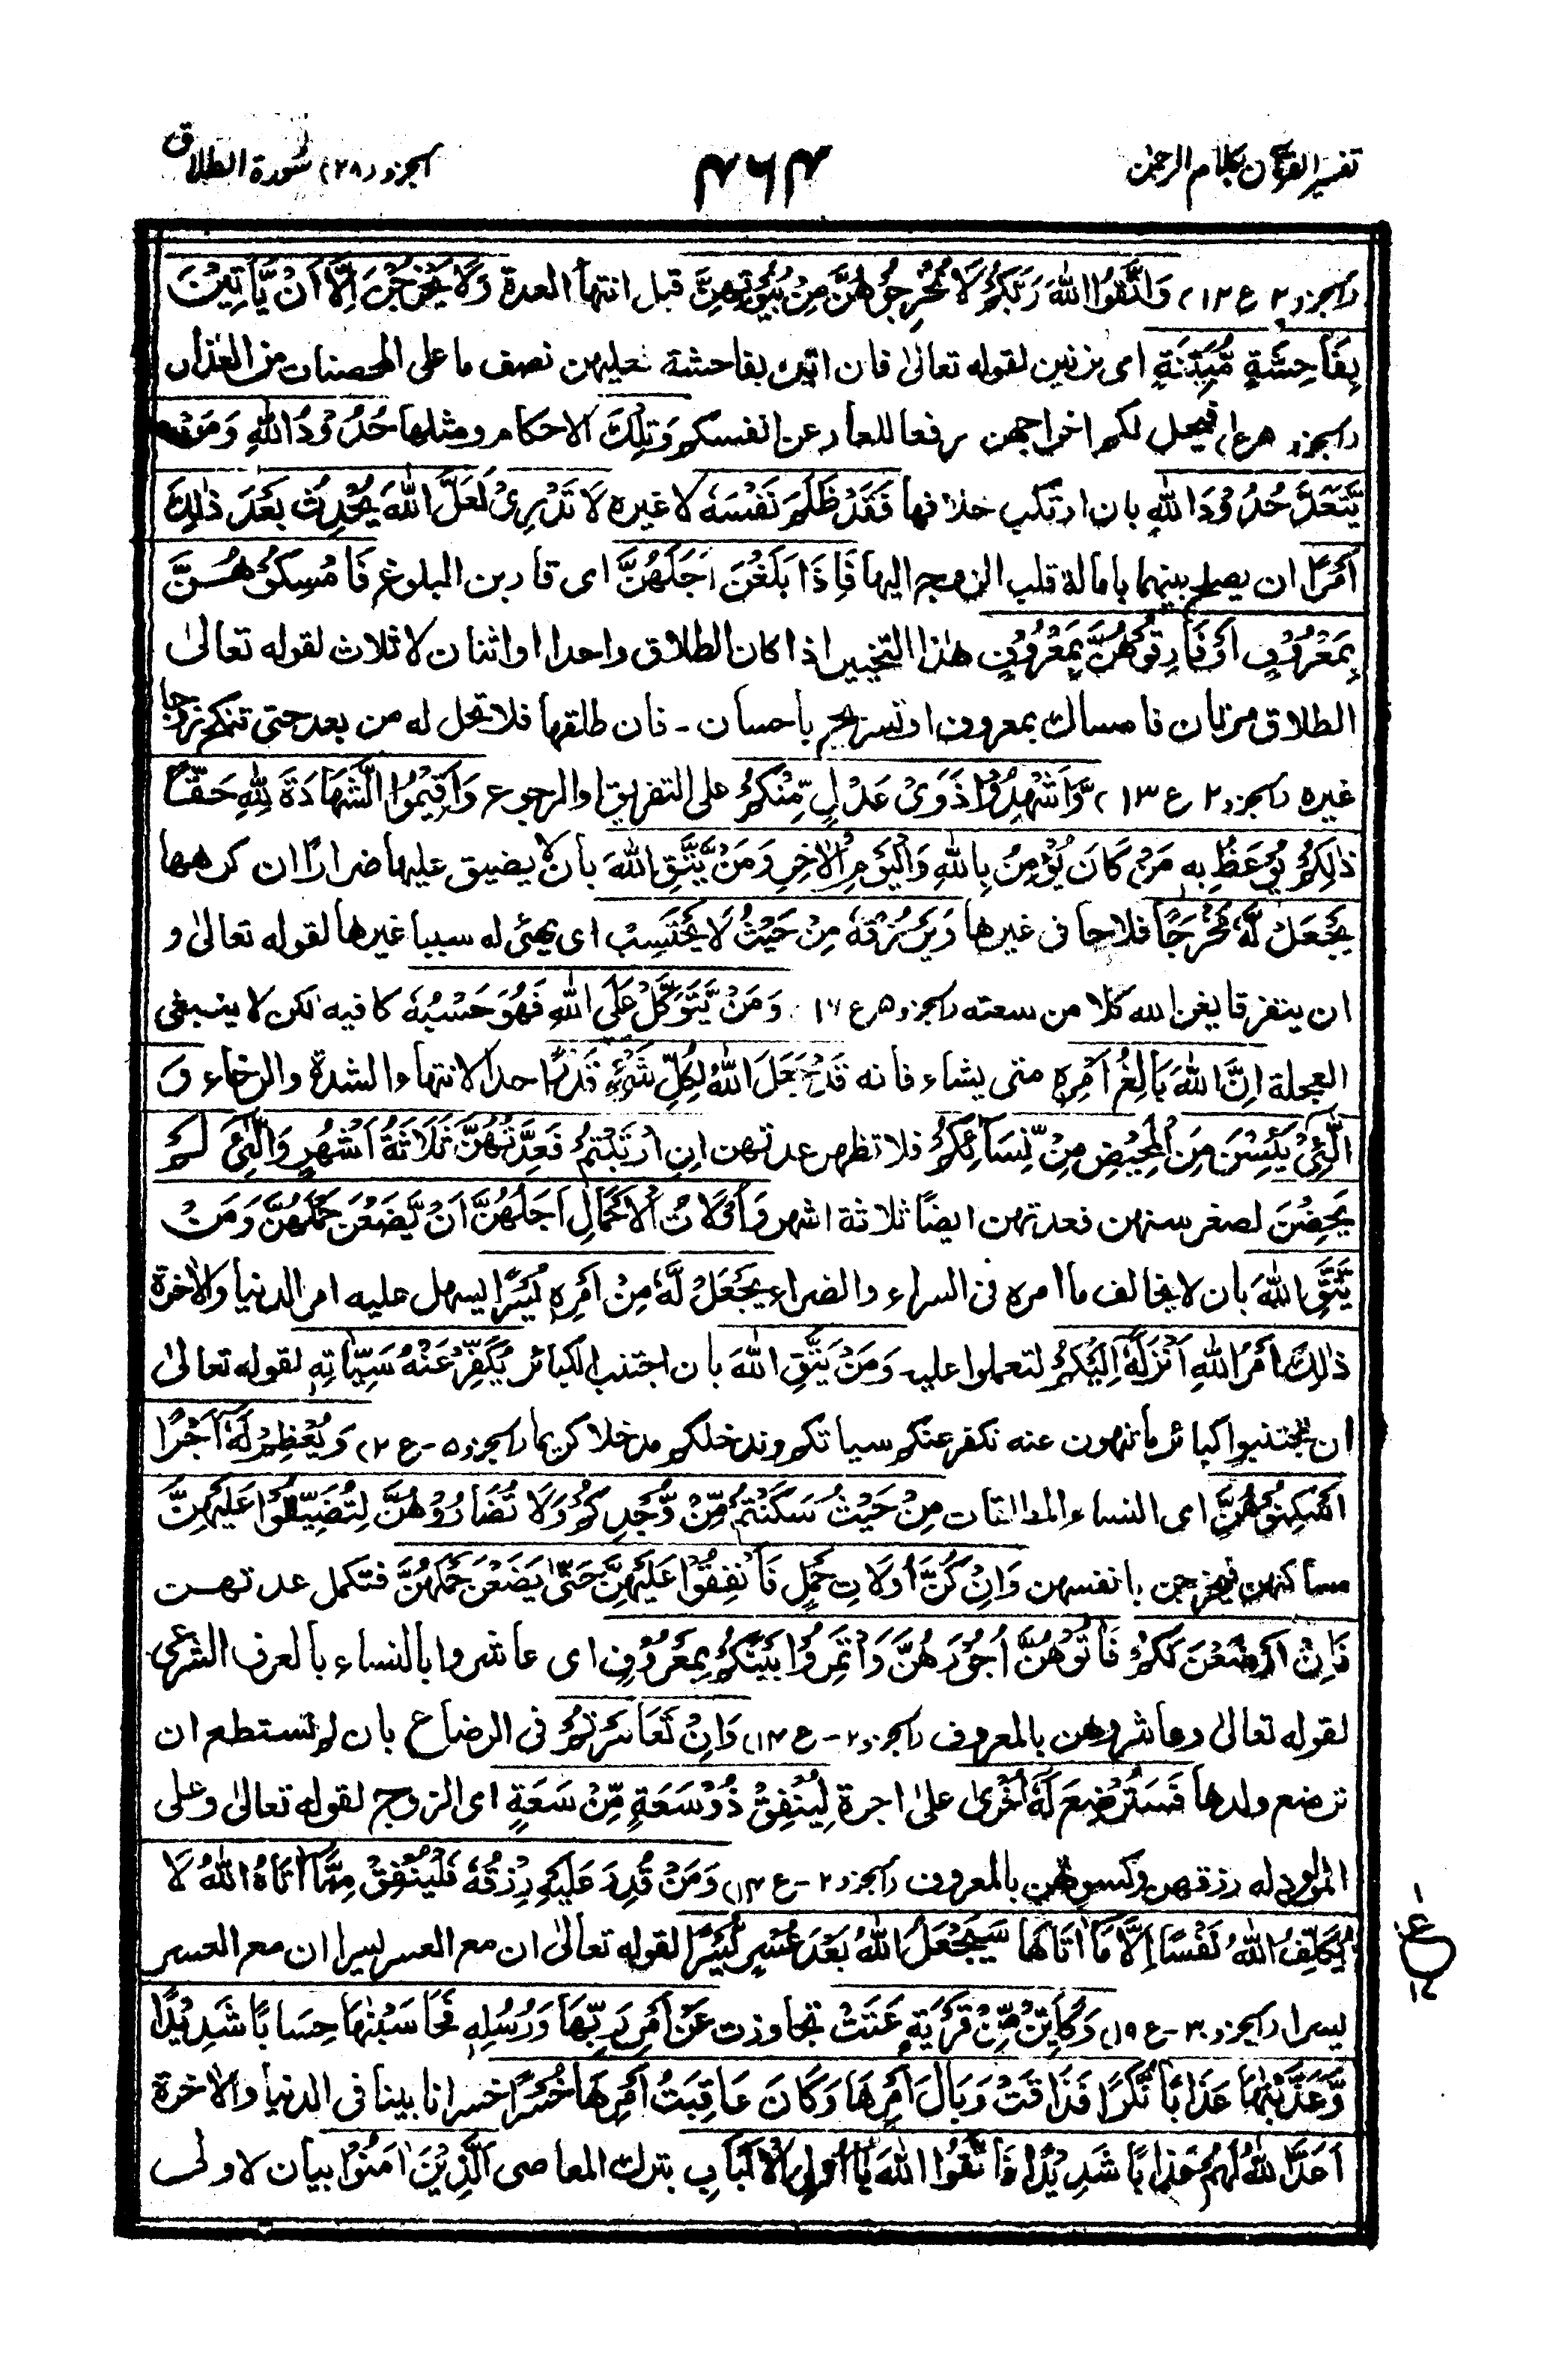 تفسير القرآن بكلام الرحمٰن ٤٦٤ الجزو (٢٨) سُورة الطلاق
(الجزو ٢ ع ١٣) وَاتَّقُوا اللّٰهَ رَبَّكُمْ لَا تُخْرِجُوْهُنَّ مِنْ بُيُوْتِهِنَّ قبل انتهاء العدة وَلَا يَخْرُجْنَ اِلَّا اَنْ يَّاْتِيْنَ
بِفَاحِشَةٍ مُّبَيِّنَةٍ اى بزنين لقوله تعالىٰ فان اتين بفاحشة فعليهن نصف ما على المحصنات من العذاب
(الجزو ٥ ع ١) فيحل لكم اخراجهن رفعا للعار عن انفسكم وَتِلْكَ الاحكام ومثلها حُدُوْدُ اللّٰهِ وَمَنْ
يَّتَعَدَّ حُدُوْدَ اللّٰهِ بان ارتكب خلافها فَقَدْ ظَلَمَ نَفْسَهٗ لا غيره لَا تَدْرِىْ لَعَلَّ اللّٰهَ يُحْدِثُ بَعْدَ ذٰلِكَ
اَمْرًا ان يصلح بينهما بامالة قلب الزوج اليها فَاِذَا بَلَغْنَ اَجَلَهُنَّ اى قاربن البلوغ فَاَمْسِكُوْهُنَّ
بِمَعْرُوْفٍ اَوْ فَارِقُوْهُنَّ بِمَعْرُوْفٍ هٰذا التخيير اذا كان الطلاق واحدا او اثنان لا ثلاث لقوله تعالىٰ
الطلاق مرتان فامساك بمعروف او تسريح باحسان - فان طلقها فلا تحل له من بعد حتى تنكح زوجا
غيره (الجزو ٢ ع ١٣) وَّاَشْهِدُوْا ذَوَىْ عَدْلٍ مِّنْكُمْ على التفريق او الرجوع وَاَقِيْمُوا الشَّهَادَةَ لِلّٰهِ حَقًّا
ذٰلِكُمْ يُوْعَظُ بِهٖ مَنْ كَانَ يُؤْمِنُ بِاللّٰهِ وَالْيَوْمِ الْاٰخِرِ وَمَنْ يَّتَّقِ اللّٰهَ بان لا يضيق عليها ضرارًا ان كرهها
يَجْعَلْ لَّهٗ مَخْرَجًا فلاحا فى غيرها وَيَرْزُقْهُ مِنْ حَيْثُ لَا يَحْتَسِبْ اى يهيئ له سببا غيرها لقوله تعالىٰ و
ان يتفرقا يغن الله كلا من سعته (الجزو ٥ ع ١٦) وَمَنْ يَّتَوَكَّلْ عَلَى اللّٰهِ فَهُوَ حَسْبُهٗ كافيه لكن لا ينبغى
العجلة اِنَّ اللّٰهَ بَالِغُ اَمْرِهٖ متى يشاء فانه قَدْ جَعَلَ اللّٰهُ لِكُلِّ شَىْءٍ قَدْرًا حدا لانتهاء الشدة والرخاء وَ
الّٰئِىْ يَئِسْنَ مِنَ الْمَحِيْضِ مِنْ نِّسَآئِكُمْ فلا تظهر عدتهن اِنِ ارْتَبْتُمْ فَعِدَّتُهُنَّ ثَلَاثَةُ اَشْهُرٍ وَّالّٰئِىْ لَمْ
يَحِضْنَ لصغر سنهن فعدتهن ايضًا ثلاثة اشهر وَاُولَاتُ الْاَحْمَالِ اَجَلُهُنَّ اَنْ يَّضَعْنَ حَمْلَهُنَّ وَمَنْ
يَّتَّقِ اللّٰهَ بان لا يخالف ما امره فى السراء والضراء يَجْعَلْ لَّهٗ مِنْ اَمْرِهٖ يُسْرًا يسهل عليه امر الدنيا والاٰخرة
ذٰلِكَ اَمْرُ اللّٰهِ اَنْزَلَهٗ اِلَيْكُمْ لتعملوا عليه وَمَنْ يَّتَّقِ اللّٰهَ بان اجتنب الكبائر يُكَفِّرْ عَنْهُ سَيِّاٰتِهٖ لقوله تعالىٰ
ان تجتنبوا كبائر ما تنهون عنه نكفر عنكم سيأتكم وندخلكم مدخلا كريما (الجزو ٥ - ع ٢) وَيُعْظِمْ لَهٗ اَجْرًا
اَسْكِنُوْهُنَّ اى النساء المطلقات مِنْ حَيْثُ سَكَنْتُمْ مِّنْ وُّجْدِكُمْ وَلَا تُضَارُّوْهُنَّ لِتُضَيِّقُوْا عَلَيْهِنَّ
مساكنهن فيخرجن بانفسهن وَاِنْ كُنَّ اُولَاتِ حَمْلٍ فَاَنْفِقُوْا عَلَيْهِنَّ حَتّٰى يَضَعْنَ حَمْلَهُنَّ فتكمل عدتهن
فَاِنْ اَرْضَعْنَ لَكُمْ فَاٰتُوْهُنَّ اُجُوْرَهُنَّ وَاْتَمِرُوْا بَيْنَكُمْ بِمَعْرُوْفٍ اى عاشروا بالنساء بالعرف الشرعى
لقوله تعالىٰ وعاشروهن بالمعروف (الجزو ٢ - ع ١٤) وَاِنْ تَعَاسَرْتُمْ فى الرضاع بان لم تستطع ان
ترضع ولدها فَسَتُرْضِعُ لَهٗ اُخْرٰى علىٰ اجرة لِيُنْفِقْ ذُوْ سَعَةٍ مِّنْ سَعَةٍ اى الزوج لقوله تعالىٰ وعلى
المولود له رزقهن وكسوتهن بالمعروف (الجزو ٢ - ع ١٤) وَمَنْ قُدِرَ عَلَيْهِ رِزْقُهٗ فَلْيُنْفِقْ مِمَّا اٰتَاهُ اللّٰهُ لَا
يُكَلِّفُ اللّٰهُ نَفْسًا اِلَّا مَا اٰتَاهَا سَيَجْعَلُ اللّٰهُ بَعْدَ عُسْرٍ يُّسْرًا لقوله تعالىٰ ان مع العسر يسرا ان مع العسر
يسرا (الجزو ٣٠ - ع ١٩) وَكَاَيِّنْ مِّنْ قَرْيَةٍ عَتَتْ تجاوزت عَنْ اَمْرِ رَبِّهَا وَرُسُلِهٖ فَحَاسَبْنٰهَا حِسَابًا شَدِيْدًا
وَّعَذَّبْنٰهَا عَذَابًا نُّكْرًا فَذَاقَتْ وَبَالَ اَمْرِهَا وَكَانَ عَاقِبَتُ اَمْرِهَا خُسْرًا خسرانا بينا فى الدنيا والاٰخرة
اَعَدَّ اللّٰهُ لَهُمْ عَذَابًا شَدِيْدًا فَاتَّقُوا اللّٰهَ يَا اُولِى الْاَلْبَابِ بترك المعاصى الَّذِيْنَ اٰمَنُوْا بيان لاولى